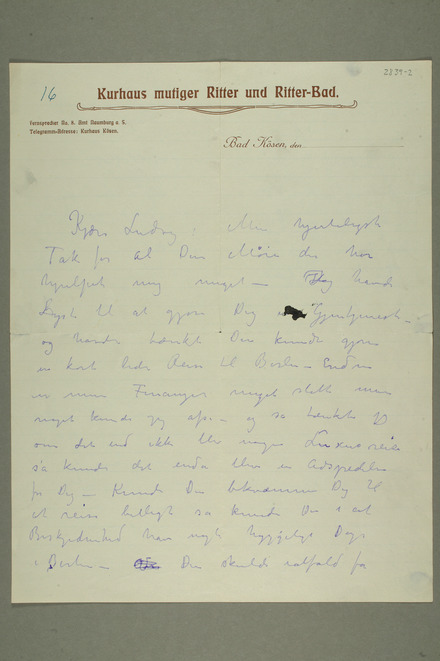 2834-2
16
Kurhaus mutiger Ritter und Ritter-Bad.
Fernsprecher No. 8. Amt Naumburg a. S.
Telegramm-Adresse: Kurhaus Kösen.
Bad Kösen, den
Kjære Ludvig: Min hjerteligste
Tak for al Din Møie der har
hjulpet mig meget — Jeg havde
Lyst til at gjøre Dig Gjentjeneste —
og havde tænkt Du kunde gjøre
en kort liden Reise til Berlin — Endnu
er mine Finanser meget slette men
noget kunde jeg afse — og så tænkte jeg
om det end ikke blev nogen Luxusreise
så kunde det endda blive en Adspredelse
for Dig — Kunde Du bekvemme Dig til
at reise billigt så kunde Du i al
Beskedenhed have nogle hyggelige Dage
i Berlin — Du skulde ialfald få